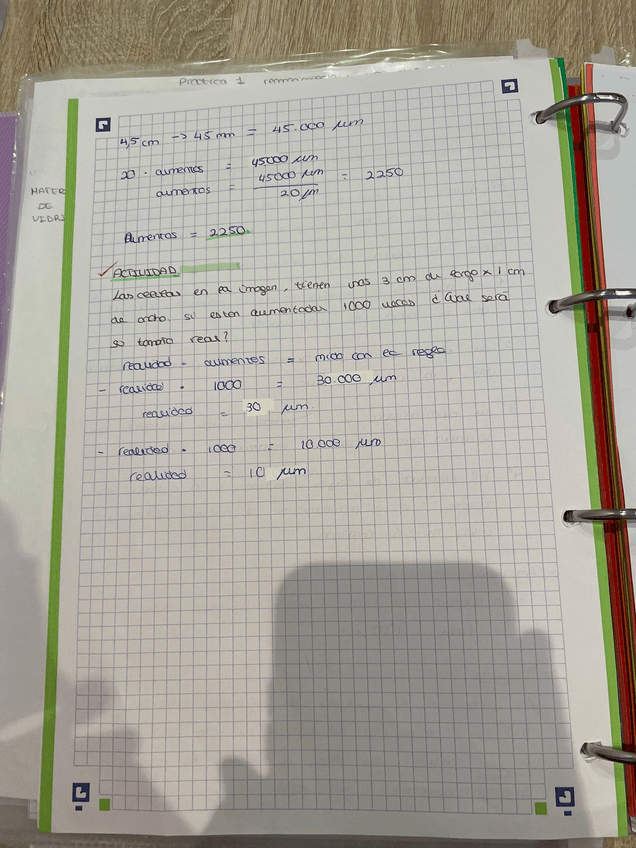 Practica 1
4,5 cm -> 45 mm = 45.000 µm
20 · aumentos = 45000 µm
aumentos = 45000 µm / 20 µm = 2250
Aumentos = 2250
MATER
DE
VIDRI
✓ ACTIVIDAD
Las células en la imagen, tienen unos 3 cm de largo x 1 cm
de ancho. si estan aumentadas 1000 veces ¿Cual será
su tamaño real?
realidad · aumentos = mido con la regla
- realidad · 1000 = 30.000 µm
realidad = 30 µm
- realidad · 1000 = 10.000 µm
realidad = 10 µm